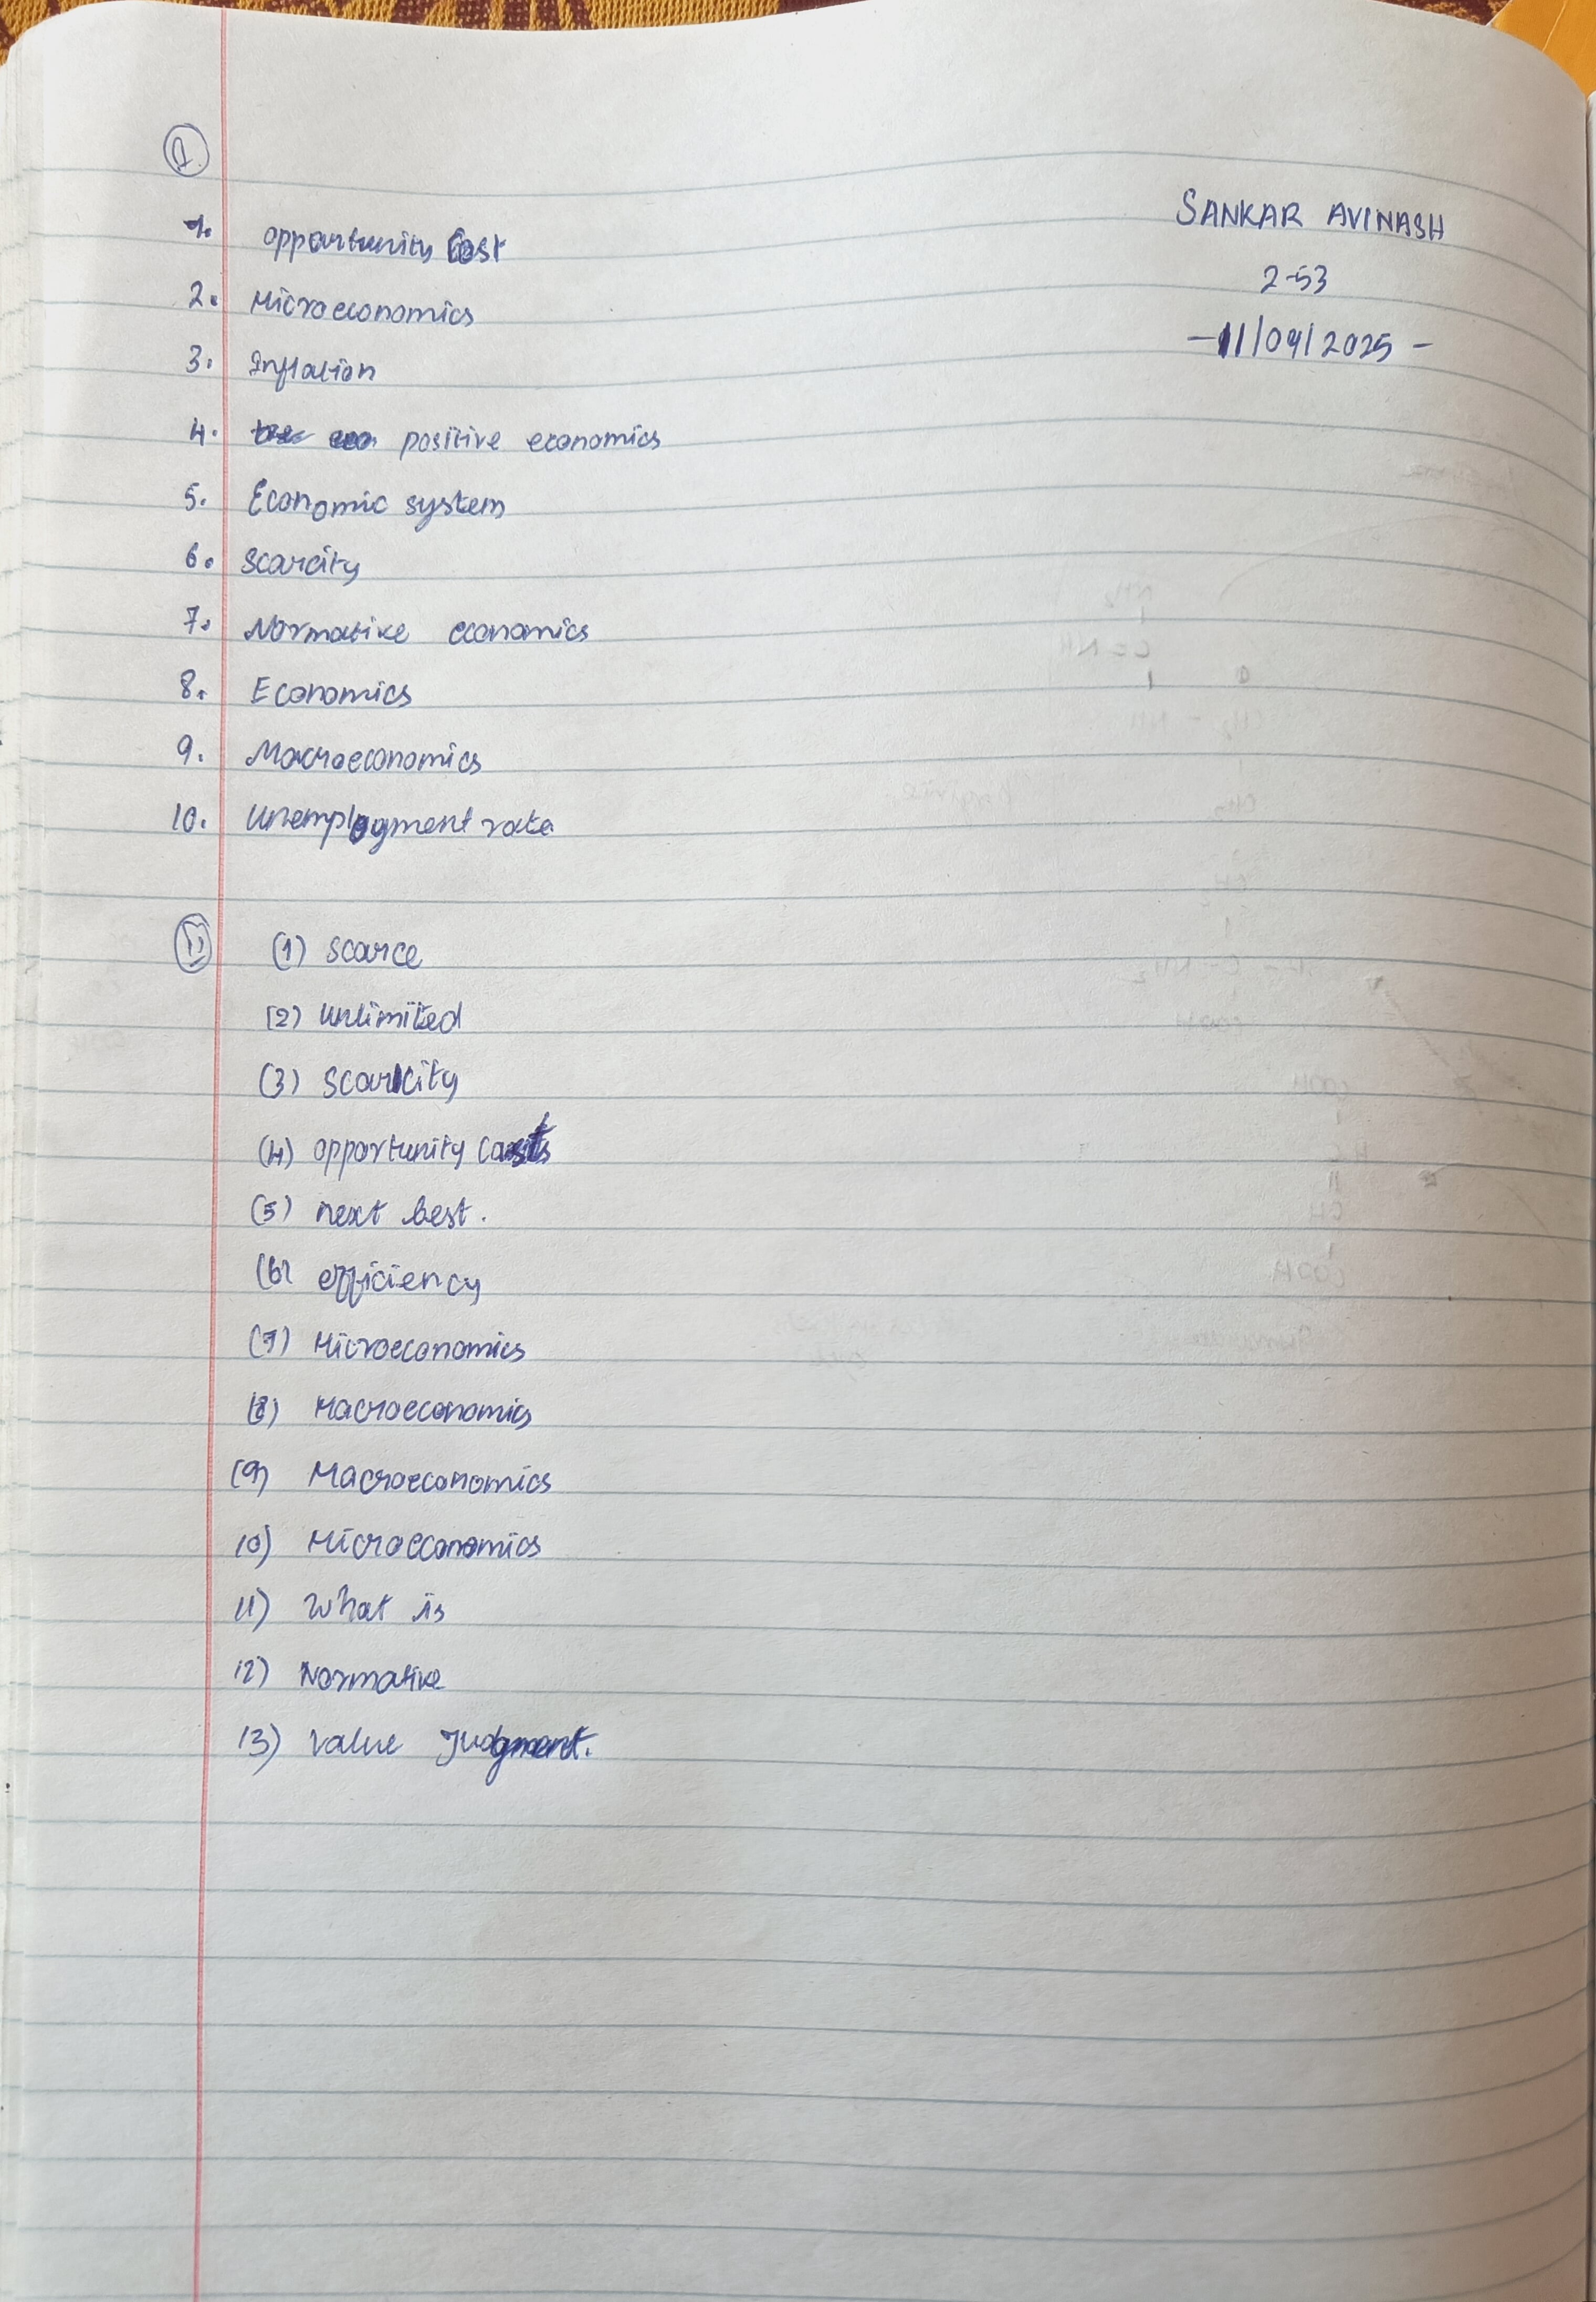 SANKAR AVINASH
2-53
-11/09/2025-
1. opportunity Cost
2. Microeconomics
3. Inflation
4. positive economics
5. Economic system
6. Scarcity
7. Normative economics
8. Economics
9. Macroeconomics
10. Unemployment rate
(1) scarce
(2) Unlimited
(3) Scarcity
(4) opportunity Costs
(5) next best.
(6) efficiency
(7) Microeconomics
(8) Macroeconomics
(9) Macroeconomics
10) Microeconomics
11) What is
12) Normative
13) Value Judgment.